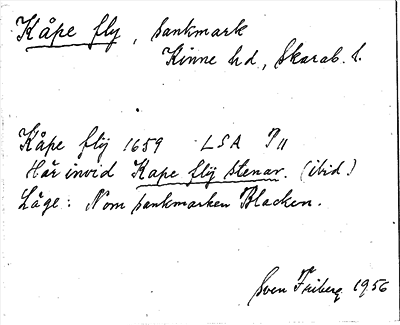 Kåpe fly, sankmark
Kinne hd, Skarab. l.
Kåpe flÿ 1659 LSA P 11
Här invid Kape flÿ stenar. (ibid.)
Läge: Nom sankmarken Blacken.
Sven Friberg 1956